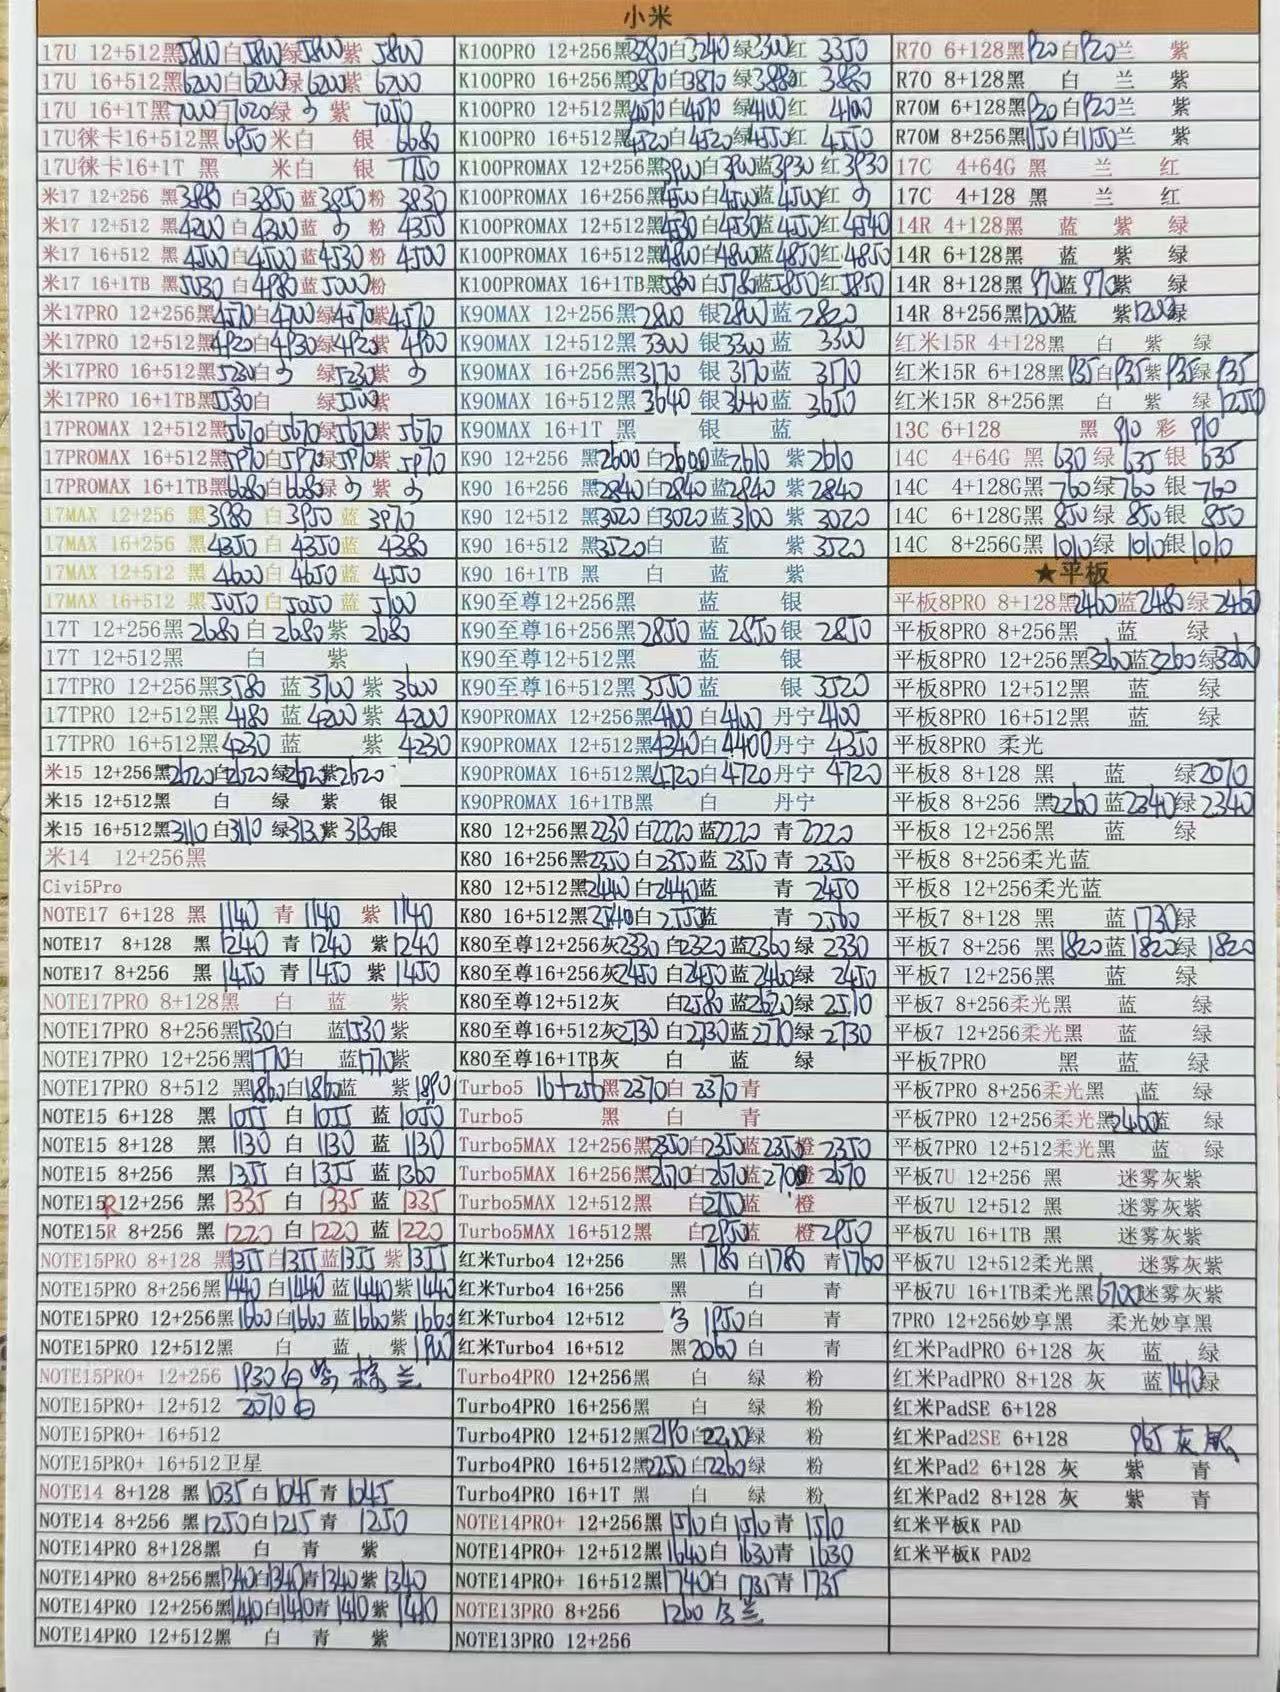 小米
17U 12+512黑5800白5800绿5800紫 5800
17U 16+512黑6200白6200绿6200紫 6200
17U 16+1T黑7000白7020绿 紫 7050
17U徕卡16+512黑6950米白 银 6680
17U徕卡16+1T 黑 米白 银 7150
米17 12+256 黑3880 白3850蓝3850粉 3830
米17 12+512 黑4200 白4300蓝 粉 4350
米17 16+512 黑4500 白4500蓝4530粉 4500
米17 16+1TB黑5030 白4980蓝5000粉
米17PRO 12+256黑4570白4700绿4570紫4570
米17PRO 12+512黑4920白4930绿4920紫4900
米17PRO 16+512黑5230白 绿5230紫
米17PRO 16+1TB黑5530白 绿5500紫
17PROMAX 12+512黑5670白5670绿5670紫 5670
17PROMAX 16+512黑5970白5970绿5970紫 5970
17PROMAX 16+1TB黑6680白6680绿 紫
17MAX 12+256 黑3980 白3950蓝 3970
17MAX 16+256 黑4350 白4350蓝 4380
17MAX 12+512 黑4600白4650蓝 4550
17MAX 16+512 黑5050 白5050蓝 5100
17T 12+256黑2680白2680紫 2680
17T 12+512黑 白 紫
17TPRO 12+256黑3580 蓝3700 紫 3600
17TPRO 12+512黑4180 蓝4200 紫 4200
17TPRO 16+512黑4230 蓝 紫 4230
米15 12+256黑2620白2620绿2620紫2620
米15 12+512黑 白 绿 紫 银
米15 16+512黑3110白3110 绿3130紫3130银
米14 12+256黑
Civi5Pro
NOTE17 6+128 黑 1140 青 1140 紫 1140
NOTE17 8+128 黑 1240 青 1240 紫1240
NOTE17 8+256 黑 1450 青 1450 紫 1450
NOTE17PRO 8+128黑 白 蓝 紫
NOTE17PRO 8+256黑1530白 蓝1530紫
NOTE17PRO 12+256黑1770白 蓝1770紫
NOTE17PRO 8+512 黑1860白1860蓝 紫1890
NOTE15 6+128 黑 1055 白 1055 蓝 1050
NOTE15 8+128 黑 1130 白 1130 蓝 1130
NOTE15 8+256 黑 1355 白 1355 蓝 1360
NOTE15R 12+256 黑 1335 白 1335 蓝 1335
NOTE15R 8+256 黑 1220 白 1220 蓝 1220
NOTE15PRO 8+128 黑1355白1355蓝1355紫1355
NOTE15PRO 8+256黑1440白1440蓝1440紫1440
NOTE15PRO 12+256黑1660白1660蓝1660紫1660
NOTE15PRO 12+512黑 白 蓝 紫1900
NOTE15PRO+ 12+256 1930白 紫 棕 兰
NOTE15PRO+ 12+512 2070白
NOTE15PRO+ 16+512
NOTE15PRO+ 16+512卫星
NOTE14 8+128 黑 1035白1045青 1045
NOTE14 8+256 黑1250白1215 青 1250
NOTE14PRO 8+128黑 白 青 紫
NOTE14PRO 8+256黑1340白1340青1340紫1340
NOTE14PRO 12+256黑1410白1410青1410紫1410
NOTE14PRO 12+512黑 白 青 紫
K100PRO 12+256黑3280白3240绿3300红 3350
K100PRO 16+256黑3870白3870绿3880红 3880
K100PRO 12+512黑4070白4070绿4100红 4100
K100PRO 16+512黑4520白4520绿4550红 4550
K100PROMAX 12+256黑3900白3900蓝3930红3930
K100PROMAX 16+256黑4500白4500蓝4500红
K100PROMAX 12+512黑4530白4530蓝4550红4540
K100PROMAX 16+512黑4800白4800蓝4850红4850
K100PROMAX 16+1TB黑5800白5780蓝5850红5850
K90MAX 12+256黑2800 银2800蓝 2820
K90MAX 12+512黑3300 银3300蓝 3300
K90MAX 16+256黑3170 银3170蓝 3170
K90MAX 16+512黑3640 银3640蓝 3650
K90MAX 16+1T 黑 银 蓝
K90 12+256 黑2600白2600蓝2610 紫2610
K90 16+256 黑2840白2840蓝2840 紫2840
K90 12+512 黑3020白3020蓝3100 紫 3020
K90 16+512 黑3520白 蓝 紫3520
K90 16+1TB 黑 白 蓝 紫
K90至尊12+256黑 蓝 银
K90至尊16+256黑2850 蓝 2850银 2850
K90至尊12+512黑 蓝 银
K90至尊16+512黑3550 蓝 银 3520
K90PROMAX 12+256黑4100白4100 丹宁4100
K90PROMAX 12+512黑4340白4400丹宁 4350
K90PROMAX 16+512黑4720白4720丹宁 4720
K90PROMAX 16+1TB黑 白 丹宁
K80 12+256黑2230 白2220蓝2220 青 2220
K80 16+256黑2350白2350蓝 2350 青 2350
K80 12+512黑2440白2440蓝 青 2450
K80 16+512黑2540白2550蓝 青 2560
K80至尊12+256灰2330 白2320蓝2360绿 2330
K80至尊16+256灰2450 白2450蓝2460绿 2450
K80至尊12+512灰 白2580蓝2620绿 2510
K80至尊16+512灰2730 白2730蓝2770绿 2730
K80至尊16+1TB灰 白 蓝 绿
Turbo5 16+256黑2370白 2370青
Turbo5 黑 白 青
Turbo5MAX 12+256黑2350白2350蓝2350橙 2350
Turbo5MAX 16+256黑2670白2670蓝2700橙 2670
Turbo5MAX 12+512黑 白2750蓝 橙
Turbo5MAX 16+512黑 白2950蓝 橙2950
红米Turbo4 12+256 黑 1780 白1780 青1760
红米Turbo4 16+256 黑 白 青
红米Turbo4 12+512 1950白 青
红米Turbo4 16+512 黑2060白 青
Turbo4PRO 12+256黑 白 绿 粉
Turbo4PRO 16+256黑 白 绿 粉
Turbo4PRO 12+512黑2190白2200绿 粉
Turbo4PRO 16+512黑2250白2260绿 粉
Turbo4PRO 16+1T 黑 白 绿 粉
NOTE14PRO+ 12+256黑1510白1510青 1510
NOTE14PRO+ 12+512黑1640白1630青 1630
NOTE14PRO+ 16+512黑1740白1735青1735
NOTE13PRO 8+256 1260 兰
NOTE13PRO 12+256
R70 6+128黑920白920兰 紫
R70 8+128黑 白 兰 紫
R70M 6+128黑920白920兰 紫
R70M 8+256黑1150白1150兰 紫
17C 4+64G 黑 兰 红
17C 4+128 黑 兰 红
14R 4+128黑 蓝 紫 绿
14R 6+128黑 蓝 紫 绿
14R 8+128黑970蓝970紫 绿
14R 8+256黑1200蓝 紫1200绿
红米15R 4+128黑 白 紫 绿
红米15R 6+128黑935白935紫935绿935
红米15R 8+256黑 白 紫 绿1250
13C 6+128 黑 910 彩 910
14C 4+64G 黑 630 绿 635银 635
14C 4+128G黑 760绿760 银 760
14C 6+128G黑 850绿 850银 850
14C 8+256G黑1010绿 1010银1010
★平板
平板8PRO 8+128黑2460蓝2480绿2460
平板8PRO 8+256黑 蓝 绿
平板8PRO 12+256黑3260蓝3260绿3260
平板8PRO 12+512黑 蓝 绿
平板8PRO 16+512黑 蓝 绿
平板8PRO 柔光
平板8 8+128 黑 蓝 绿2070
平板8 8+256 黑2260蓝2340绿2340
平板8 12+256黑 蓝 绿
平板8 8+256柔光蓝
平板8 12+256柔光蓝
平板7 8+128 黑 蓝1730绿
平板7 8+256 黑1820蓝1820绿 1820
平板7 12+256黑 蓝 绿
平板7 8+256柔光黑 蓝 绿
平板7 12+256柔光黑 蓝 绿
平板7PRO 黑 蓝 绿
平板7PRO 8+256柔光黑 蓝 绿
平板7PRO 12+256柔光黑2460蓝 绿
平板7PRO 12+512柔光黑 蓝 绿
平板7U 12+256 黑 迷雾灰紫
平板7U 12+512 黑 迷雾灰紫
平板7U 16+1TB 黑 迷雾灰紫
平板7U 12+512柔光黑 迷雾灰紫
平板7U 16+1TB柔光黑6700迷雾灰紫
7PRO 12+256妙享黑 柔光妙享黑
红米PadPRO 6+128 灰 蓝 绿
红米PadPRO 8+128 灰 蓝1410绿
红米PadSE 6+128
红米Pad2SE 6+128 965 灰
红米Pad2 6+128 灰 紫 青
红米Pad2 8+128 灰 紫 青
红米平板K PAD
红米平板K PAD2